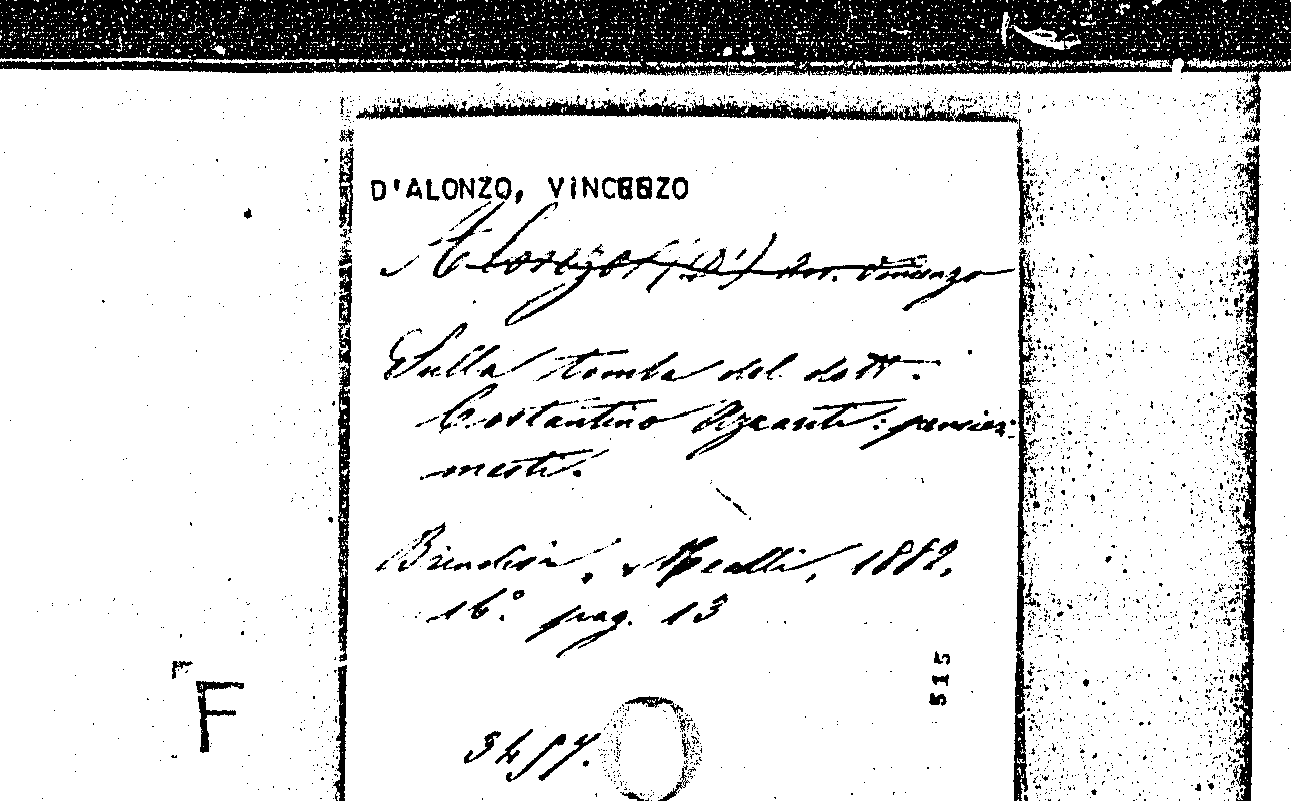 D'ALONZO, VINCENZO
Alonzo (D') avv. Vincenzo
Sulla tomba del dott.
Costantino : pensieri
mesti.
Brindisi, Mealli, 1882,
16.° pag. 13
515
F
3457.